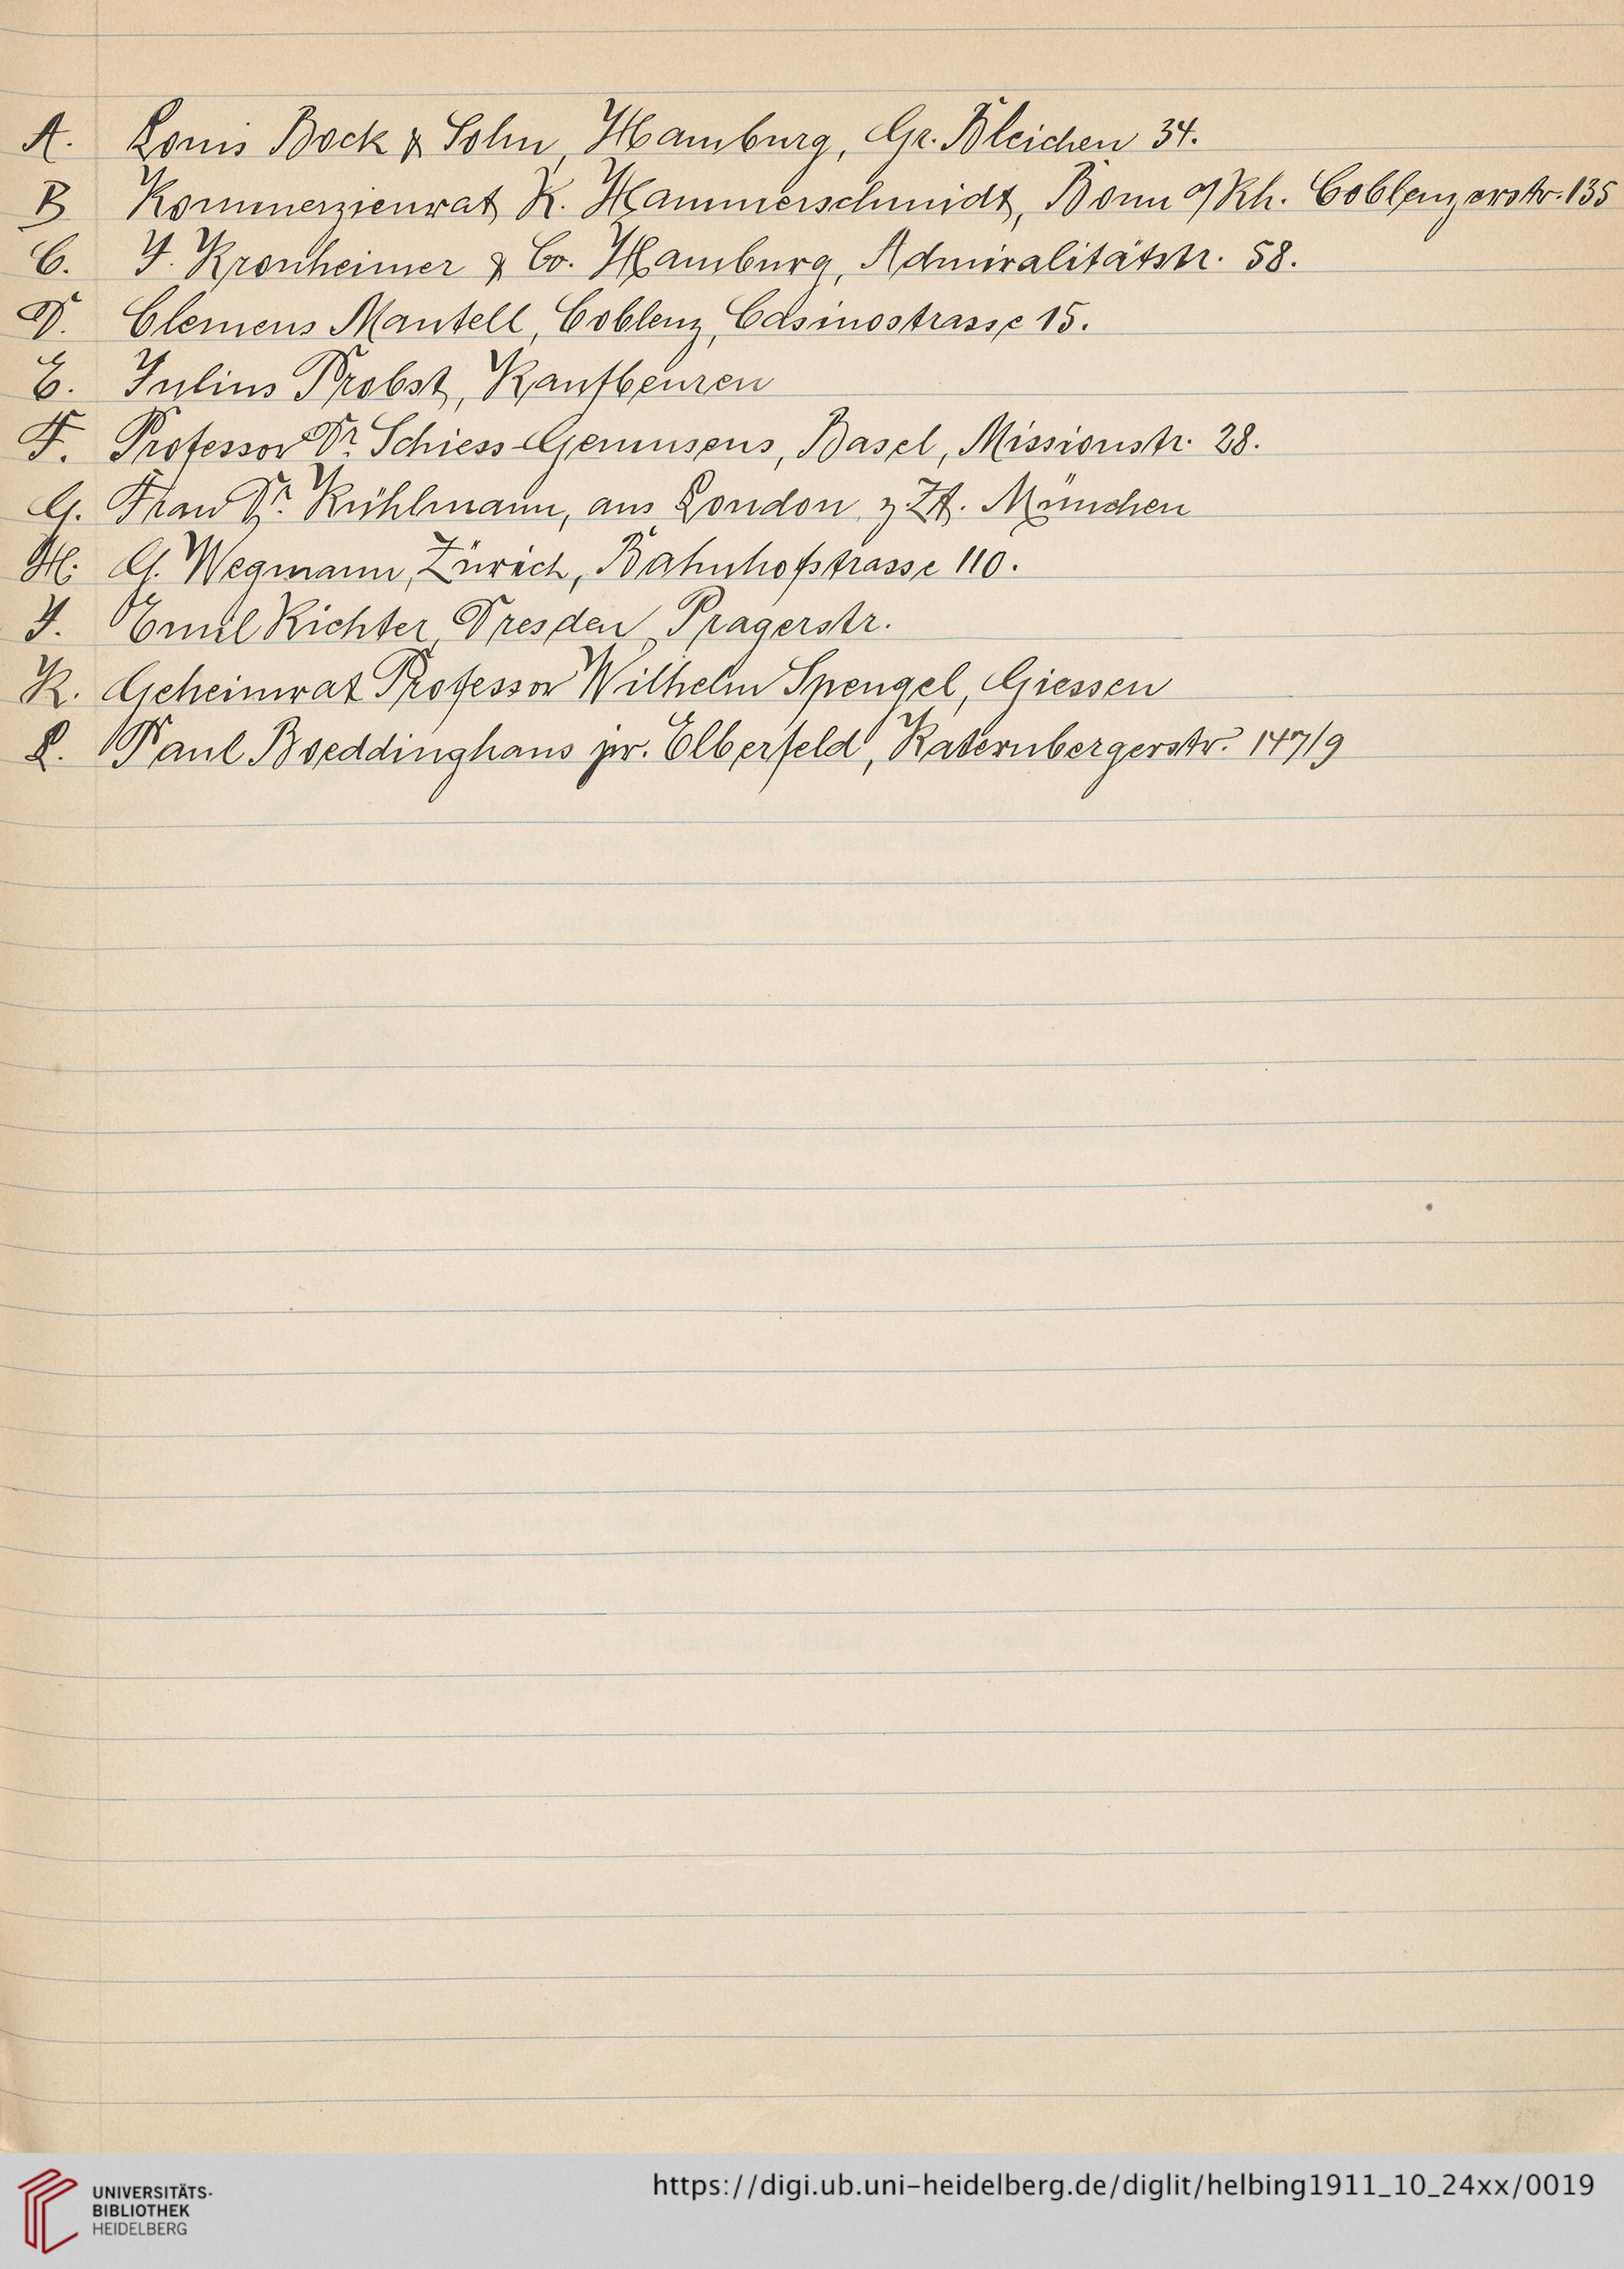 A. Louis Bock & Sohn, Hamburg, Gr. Bleichen 34.
B Kommerzienrat K. Hammerschmidt, Bonn a/Rh. Coblenzerstr. 135
C. J. Kronheimer & Co. Hamburg, Admiralitätstr. 58.
D. Clemens Mantell, Coblenz, Casinostrasse 15.
E. Julius Probst, Kaufbeuren
F. Professor Dr. Schiess-Gemuseus, Basel, Missionstr. 28.
G. Frau Dr. Kühlmann, aus London z. Zt. München
H. G. Wegmann, Zürich, Bahnhofstrasse 110.
J. Emil Richter, Dresden, Pragerstr.
K. Geheimrat Professor Wilhelm Spengel, Giessen
L. Paul Boeddinghaus jr. Elberfeld, Katernbergerstr. 147/9
https://digi.ub.uni-heidelberg.de/diglit/helbing1911_10_24xx/0019
UNIVERSITÄTS-
BIBLIOTHEK
HEIDELBERG